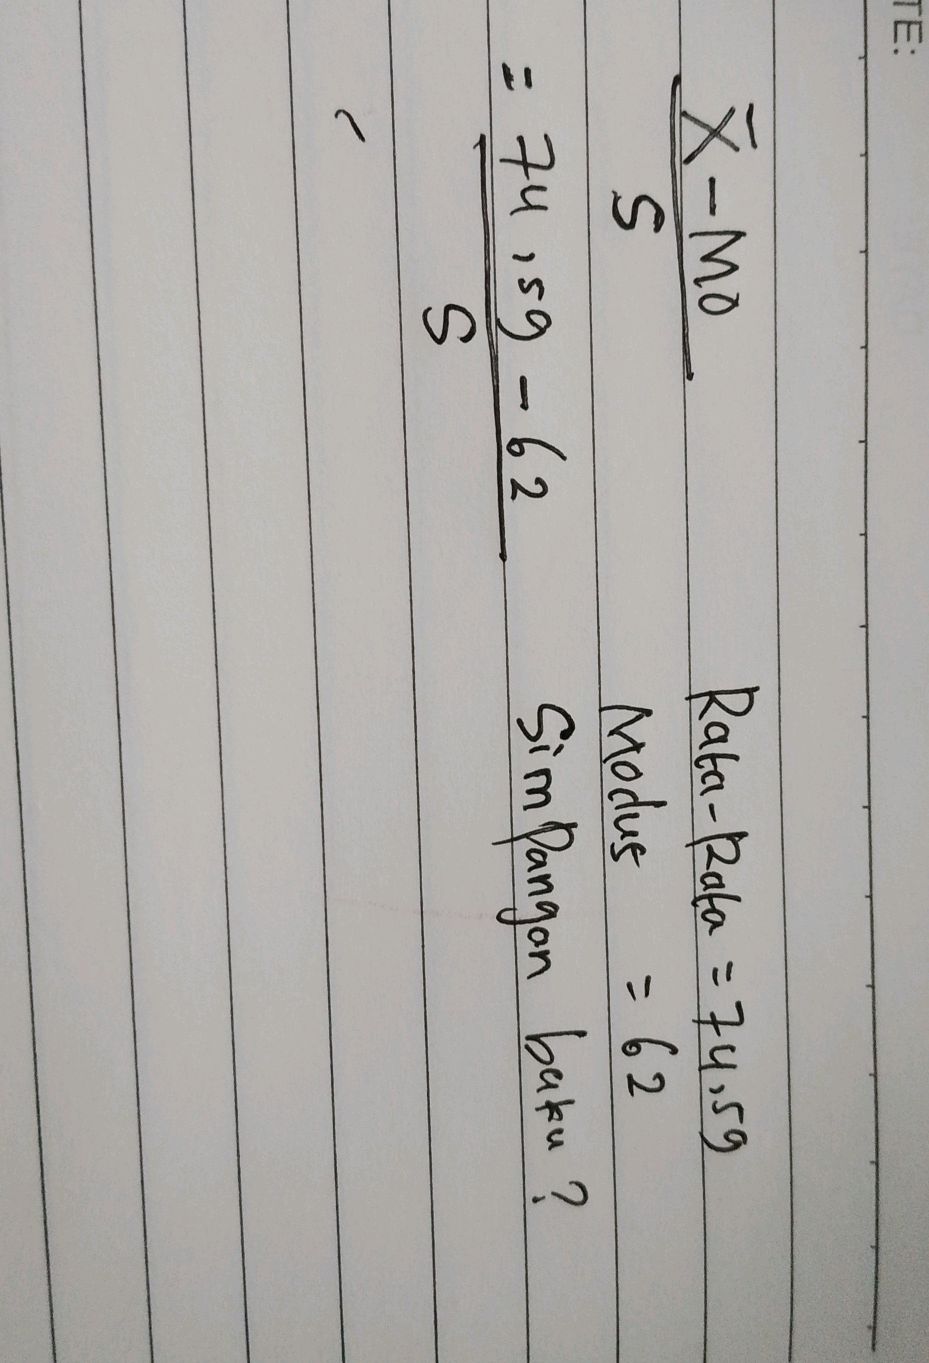 TE:
X̄ - MO Rata-Rata = 74,59
S Modus = 62
= 74,59 - 62 Simpangan baku?
S